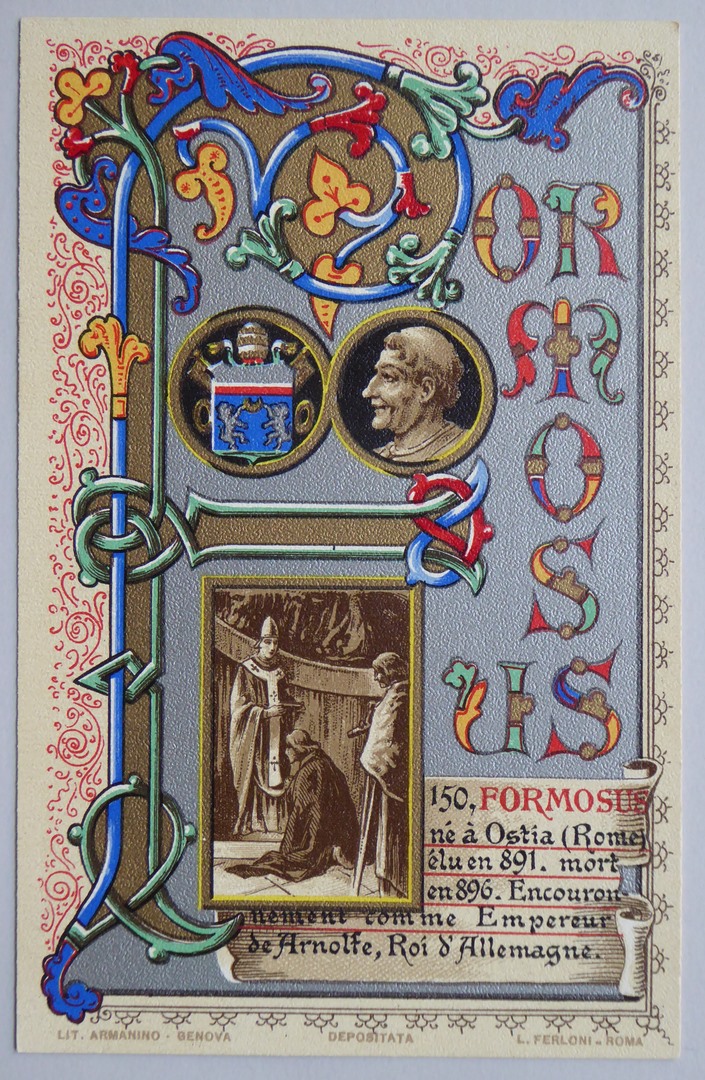 FORMOSUS
150, FORMOSUS
né à Ostia (Rome)
élu en 891. mort
en 896. Encouron-
nement comme Empereur
de Arnolfe, Roi d'Allemagne.
LIT. ARMANINO - GENOVA DEPOSITATA L. FERLONI - ROMA